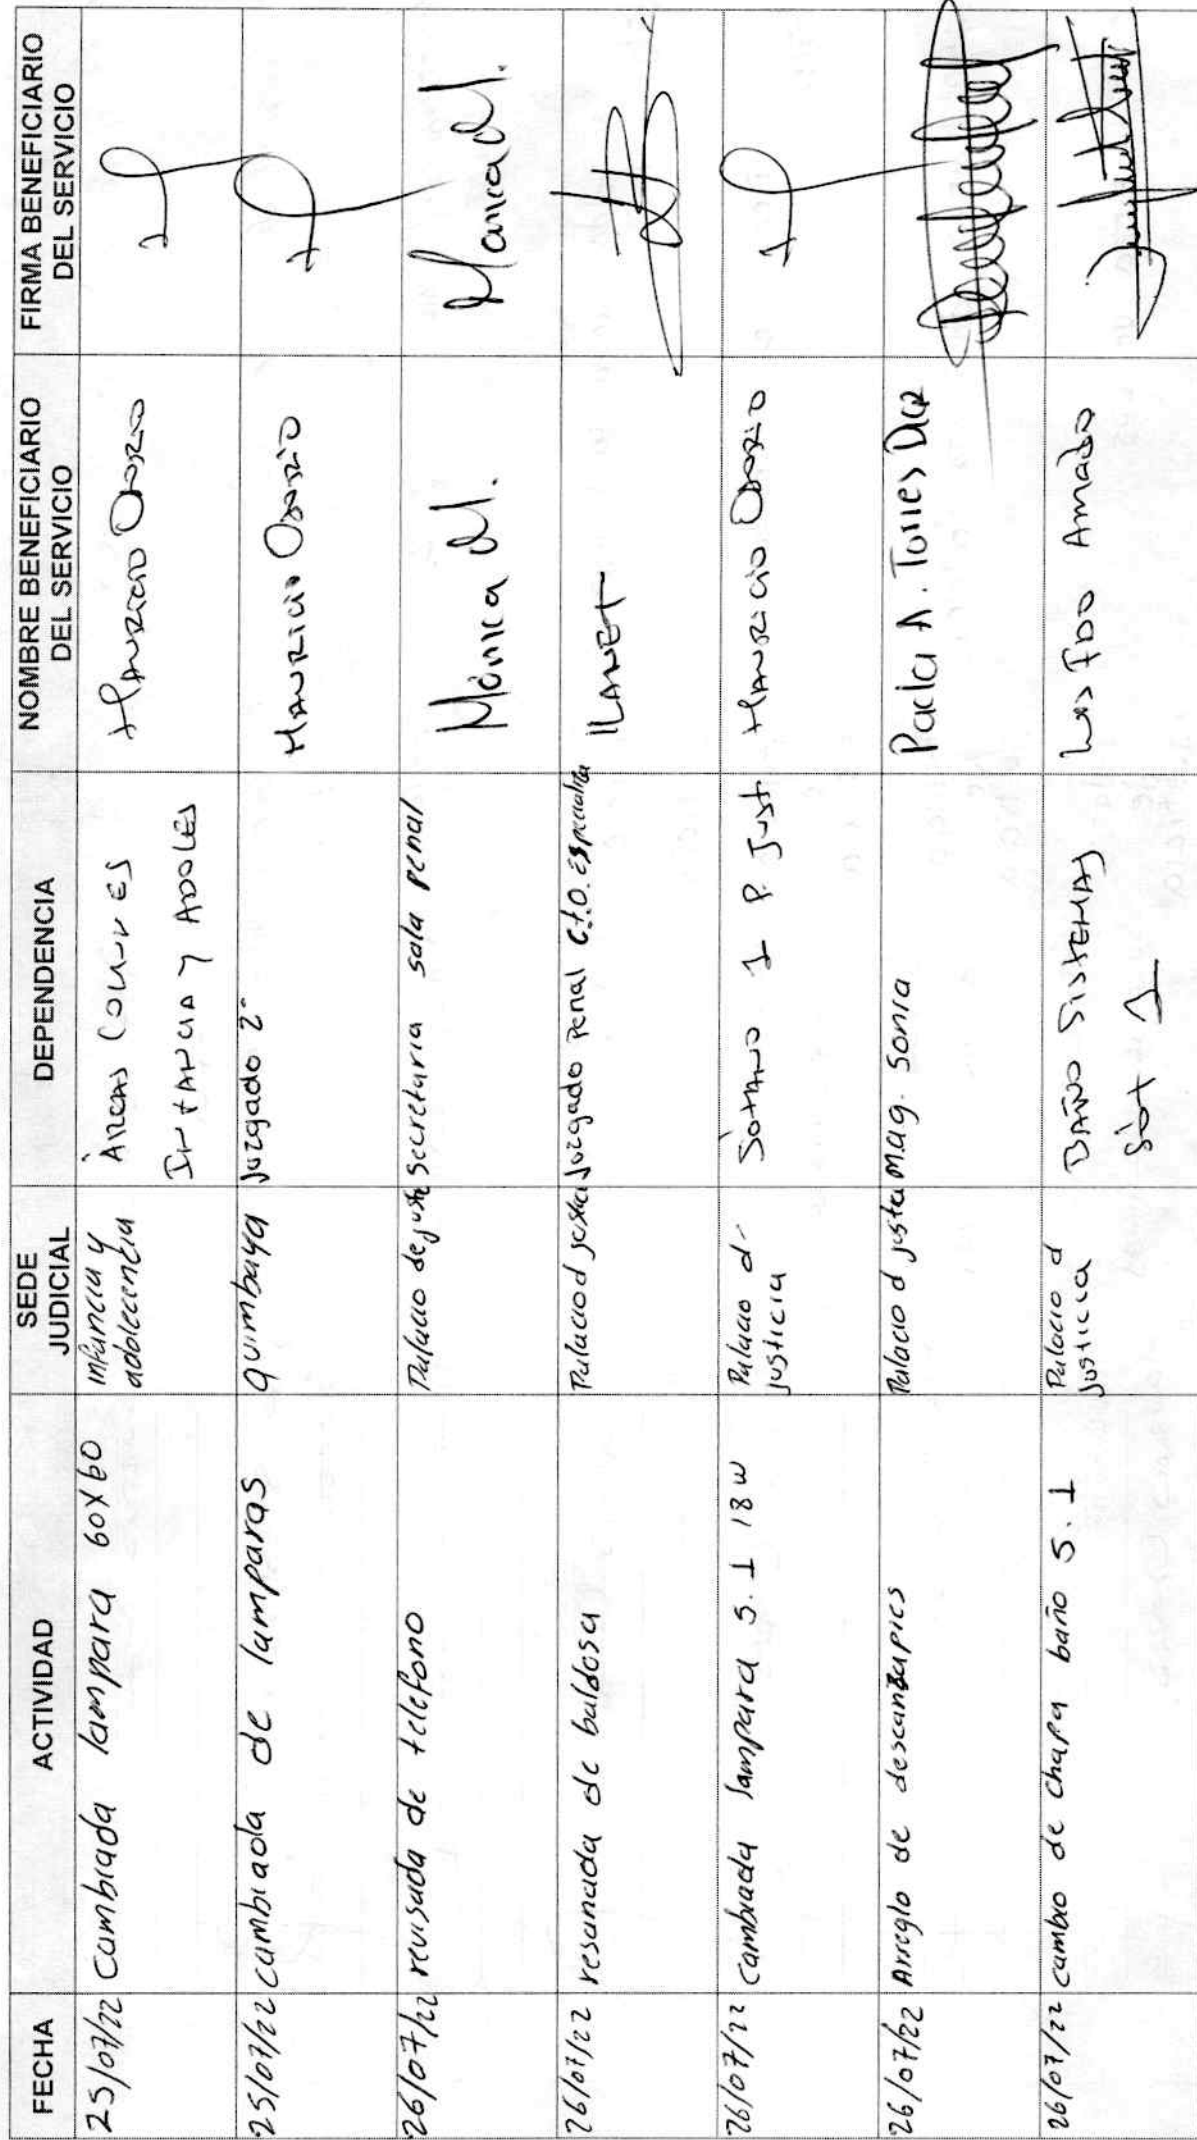 FECHA
ACTIVIDAD
SEDE
JUDICIAL
DEPENDENCIA
NOMBRE BENEFICIARIO
DEL SERVICIO
FIRMA BENEFICIARIO
DEL SERVICIO
25/07/22 Cambiada lampara 60x60
infancia y
adolecencia
Áreas Comunes
Infancia y Adoles
Mauricio Osorio
25/07/22 cambiada de lamparas
quimbaya
Juzgado 2º
Mauricio Osorio
26/07/22 revisada de telefono
Palacio de juste
Secretaria sala penal
Mónica M.
Monica M.
26/07/22 resanada de baldosa
Palacio d justicia
Juzgado Penal Cto. Especializa
26/07/22 cambiada lampara S.1 18w
Palacio d
justicia
Sotano 1 P. Just
Mauricio Osorio
26/07/22 Arreglo de descansapies
Palacio d justa
Mag. Sonia
Paola A. Torres Diaz
26/07/22 cambio de chapa baño S.1
Palacio d
justicia
Baño Sistemas
Sót 1
Luis Fdo Amado